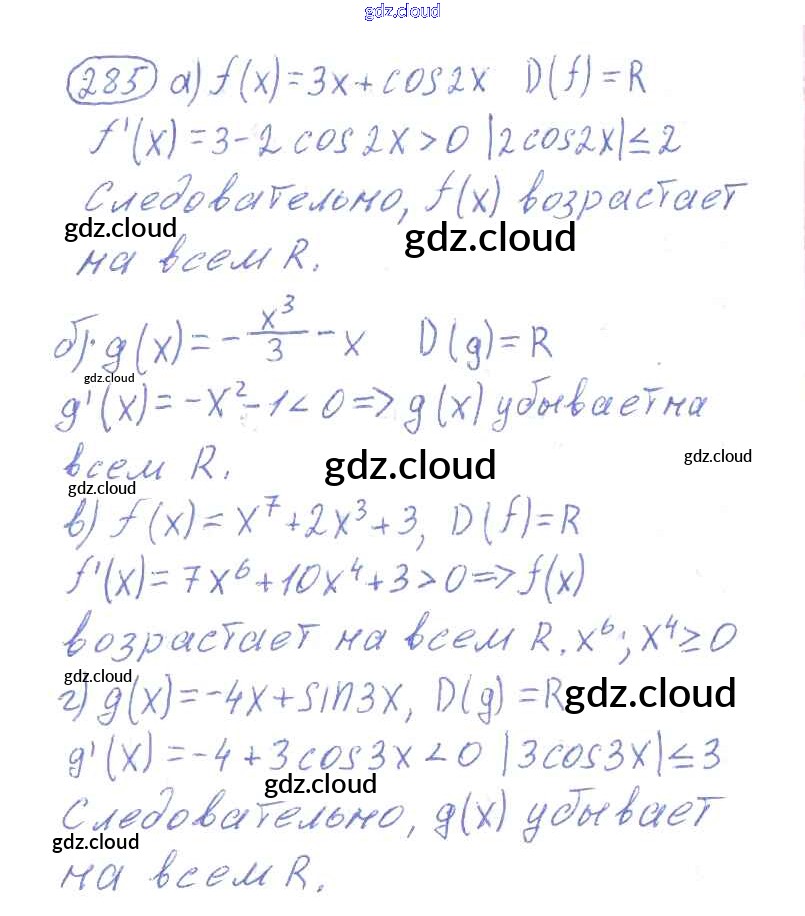 gdz.cloud
285 а) f(x)=3x+cos2x D(f)=R
f'(x)=3-2cos2x>0 |2cos2x|≤2
Следовательно, f(x) возрастает
gdz.cloud gdz.cloud
на всем R.
б) g(x)=-x³/3-x D(g)=R
gdz.cloud
g'(x)=-x²-1<0=>g(x) убывает на
всем R. gdz.cloud gdz.cloud
gdz.cloud
в) f(x)=x⁷+2x³+3, D(f)=R
f'(x)=7x⁶+10x⁴+3>0=>f(x)
возрастает на всем R. x⁶; x⁴≥0
gdz.cloud
г) g(x)=-4x+sin3x, D(g)=R gdz.cloud
g'(x)=-4+3cos3x<0 |3cos3x|≤3
gdz.cloud
Следовательно, g(x) убывает
gdz.cloud
на всем R.